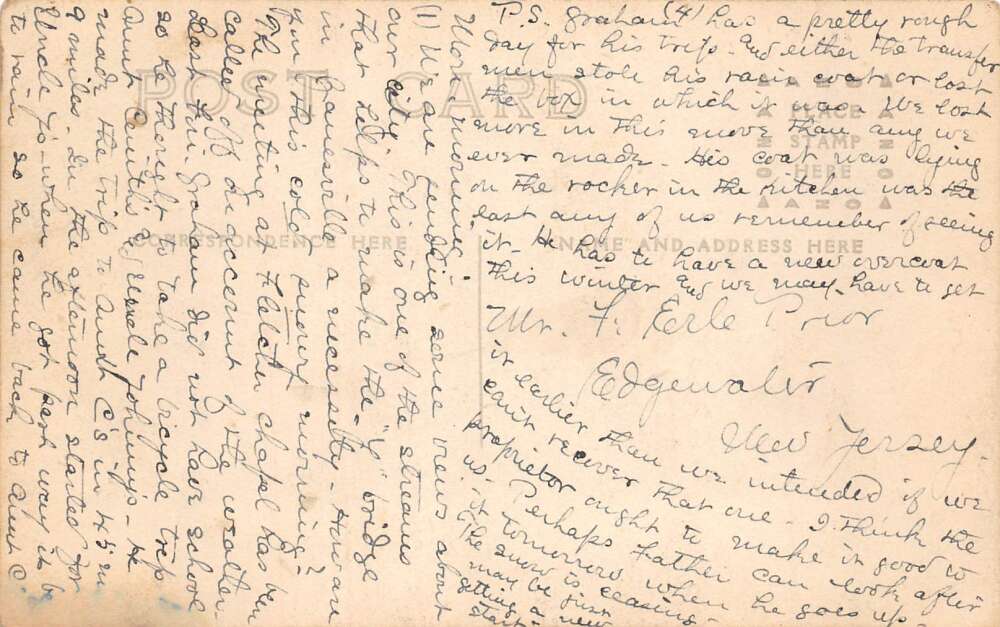 POST CARD
CORRESPONDENCE HERE
NAME AND ADDRESS HERE
PLACE
STAMP
HERE
Mon. morning.
(1) We are sending some views about
our city. This is one of the streams
that helps to make the "Y" bridge
in Zanesville a necessity - How are
you this cold snowy morning?
The meeting at Fletcher Chapel has been
called off on account of the weather.
Last Fri. Graham did not have school
so he thought to take a bicycle trip
Aunt C & Uncle Johnny's - He
made the trip to Aunt C's in 45 m
9 miles. In the afternoon started for
Uncle J's - when he got part way it be
to rain so he came back to Aunt C.
P.S. Graham (4) has a pretty rough
day for his trip. And either the transfer
men stole his rain coat or lost
the box in which it was. We lost
more in this move than any we
ever made - His coat was lying
on the rocker in the kitchen was the
last any of us remember of seeing
it. He has to have a new overcoat
this winter and we may have to get
Mr. F. Earle Prior
Edgewater
New Jersey.
it earlier than we intended if we
can't recover that one - I think the
proprietor ought to make it good to
us. Perhaps father can look after
it tomorrow when he goes up -
The snow is ceasing -
may be just
getting a new
start -